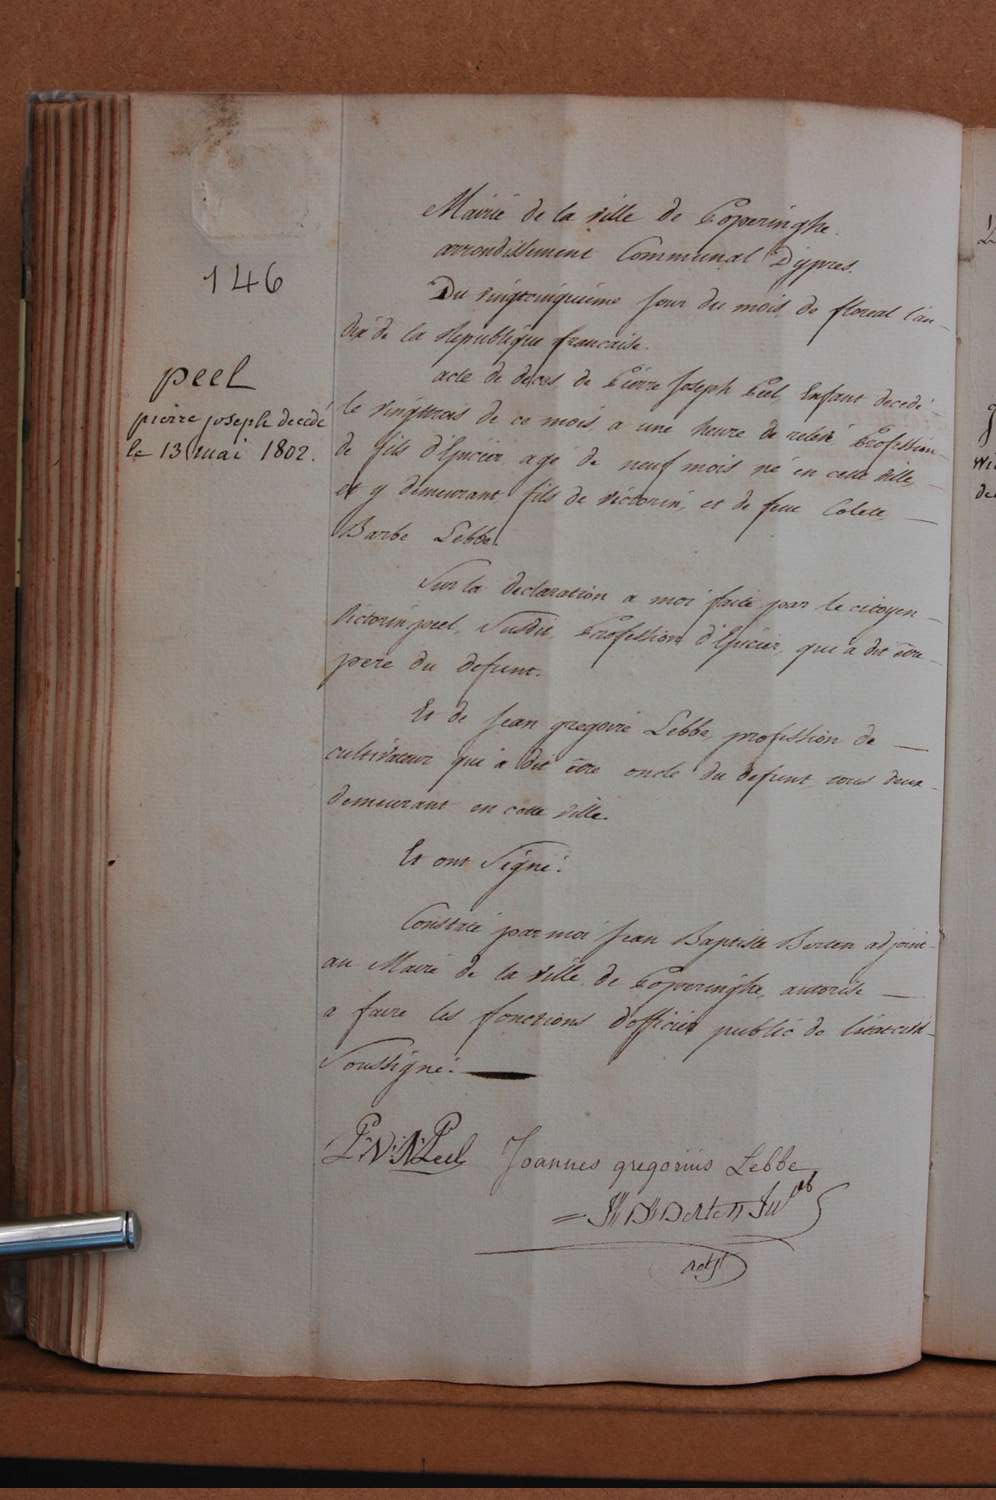 146
peel
pieire joseph decedé
le 13 mai 1802.
Mairie de la ville de Poperinghe
arrondissement Communal D'ypres.
Du vingtcinquieme jour du mois de floreal l'an
dix de la republique francaise.
acte de deces de Pierre Joseph Peel Enfant decedé
le vingtrois de ce mois a une heure de relevé Profession
de fils d'Epicier agé de neuf mois né en cette ville,
et y demeurant fils de victorin, et de feue Colete
Barbe Lebbe.
Sur la declaration a moi faite par le citoyen
Victorin peel, Susdit, Profession d'Epicier, qui a dit être
pere du defunt.
Et de Jean gregoire Lebbe profession de
cultivateur qui a dit être oncle du defunt tous deux
demeurant en cette ville.
Et ont Signé:
Constaté par moi Jean Baptiste Berten adjoint
au Maire de la ville de Poperinghe, autorisé
a faire les fonctions d'officier public de l'etat civil
Soussigné:
Peel Joannes gregorius Lebbe